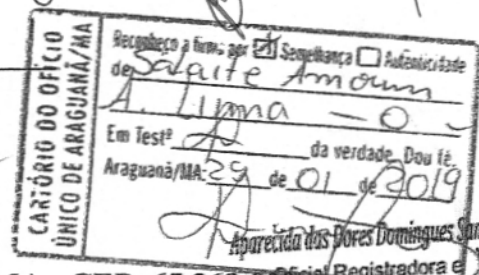 CARTÓRIO DO OFÍCIO
ÚNICO DE ARAGUANÃ/MA
Reconheço a firma por ☒ Semelhança ☐ Autenticidade
de
A. Lima
Em Testº da verdade. Dou fé.
Araguanã/MA: 29 de 01 de 2019
Aparecida das Dores Domingues
Oficial Registradora e